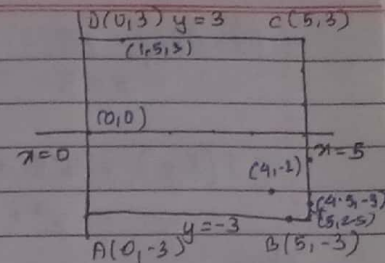 D(0,3) y=3 C(5,3)
(1,5,3)
(0,0)
x=0
x=5
(4,-2)
(4.5,-3)
(5,2-5)
y=-3
A(0,-3)
B(5,-3)